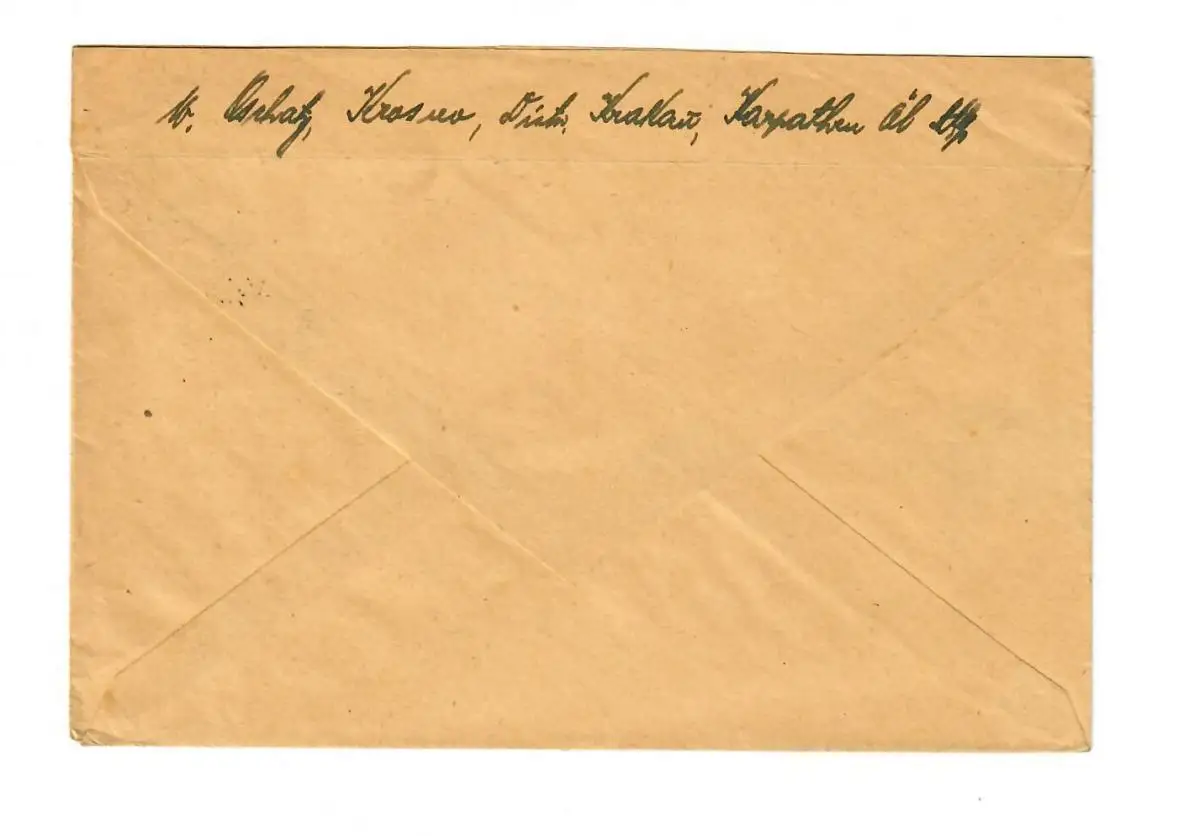 W. Oschatz, Krosno, Distr. Krakau, Karpathen Öl AG